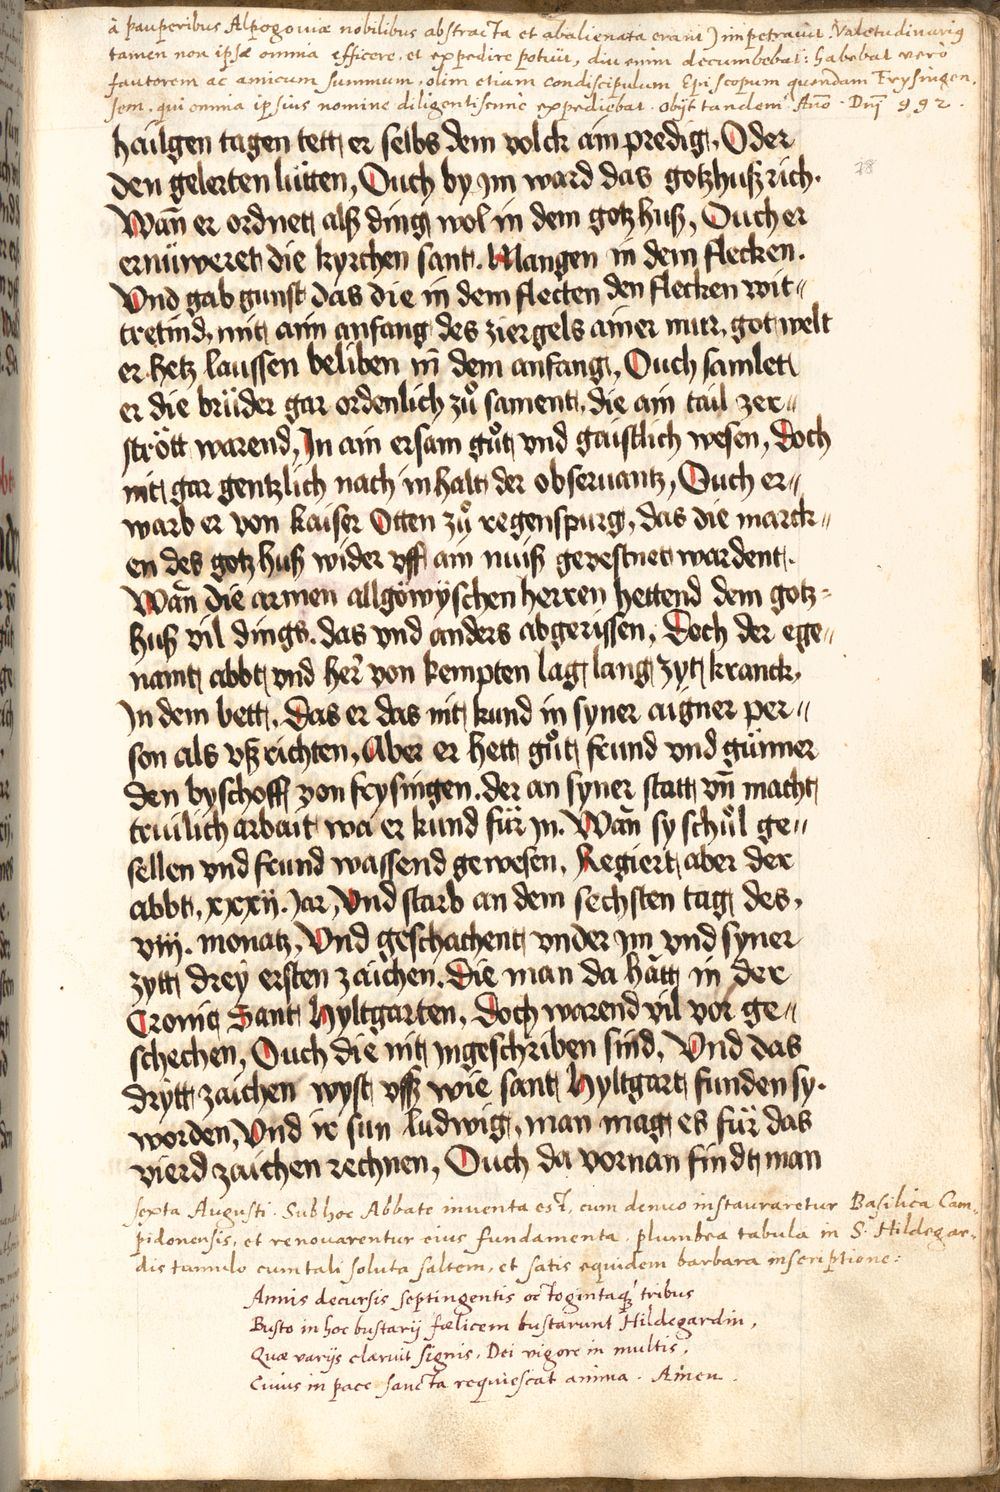 à pauperibus Alpogoviæ nobilibus abstracta et abalienata erant) impetravit. Valetudinarius
tamen non ipse omnia efficere, et expedire potuit, diu enim decumbebat: habebat vero
fautorem ac amicum summum, olim etiam condiscipulum Episcopum quendam Frysingen,
sem, qui omnia ipsius nomine diligentissime expediebat. obijt tandem Año Dnj 992.
hailgen tagen tett er selbs dem volck ain predig, Oder
den gelerten lütten, Ouch by jm ward das gotzhuß rich.
28
Wañ er ordnet alß ding wol in dem gotzhuß, Ouch er
ernüweret die kyrchen sant. Mangen in dem flecken.
Vnd gab gunst das die in dem flecken den flecken wit„
tretind, mit ain anfang des ziergels ainer mur, got welt
er hetz laussen beliben in dem anfang, Ouch samlet
er die brüder gar ordenlich zů sament, die ain tail zer„
strött warend, In ain ersam gůt vnd gaistlich wesen, Doch
nit gar gentzlich nach inhalt der obseruantz, Ouch er„
warb er von kaiser Otten zů regenspurg, das die marck„
en des gotzhuß wider vff ain nuiß gevestnet wardent.
Wañ die armen allgöwyschen herren hettend dem gotz„
huß vil dings. das vnd anders abgerissen, Doch der ege„
namt abbt vnd her von kempten lag lang zyt kranck,
Jn dem bett, Das er das nit kund in syner aigner per„
son als vßrichten, Aber er hett gůt frund vnd günner
den byschoff von freysingen. der an syner statt vñ macht
truilich arbait wa er kund für jn. Wañ sy schůl ge„
sellen vnd frund wassend gewesen, Regiert aber der
abbt, xxxij. Jar, Vnd starb an dem sechsten tag des,
viij. monatz, Vnd geschachent vnder jm vnd syner
zytt drey ersten zaichen. Die man da hatt in der
Cronic Sant Hyltgarten, Doch warend vil vor ge„
schechen, Ouch die nit ingeschriben sind, Vnd das
drytt zaichen wyst vß wie sant Hyltgart funden sy.
worden, Vnd ir sun Ludwig, man mag es für das
vierd zaichen rechnen, Ouch da vornan findt man
sexta Augusti. Sub hoc Abbate inventa est, cum denuo instauraretur Basilica Cam„
pidonensis, et renovarentur eius fundamenta, plumbea tabula in S. Hildegar„
dis tumulo cum tali soluta saltem, et satis equidem barbara inscriptione:
Annis decursis septingentis octogintaq́ tribus
Busto in hoc bustarij fælicem bustarunt Hildegardin,
Quæ varijs claruit signis, Dei vigore in multis,
Cuius in pace sancta requiescat anima. Amen.